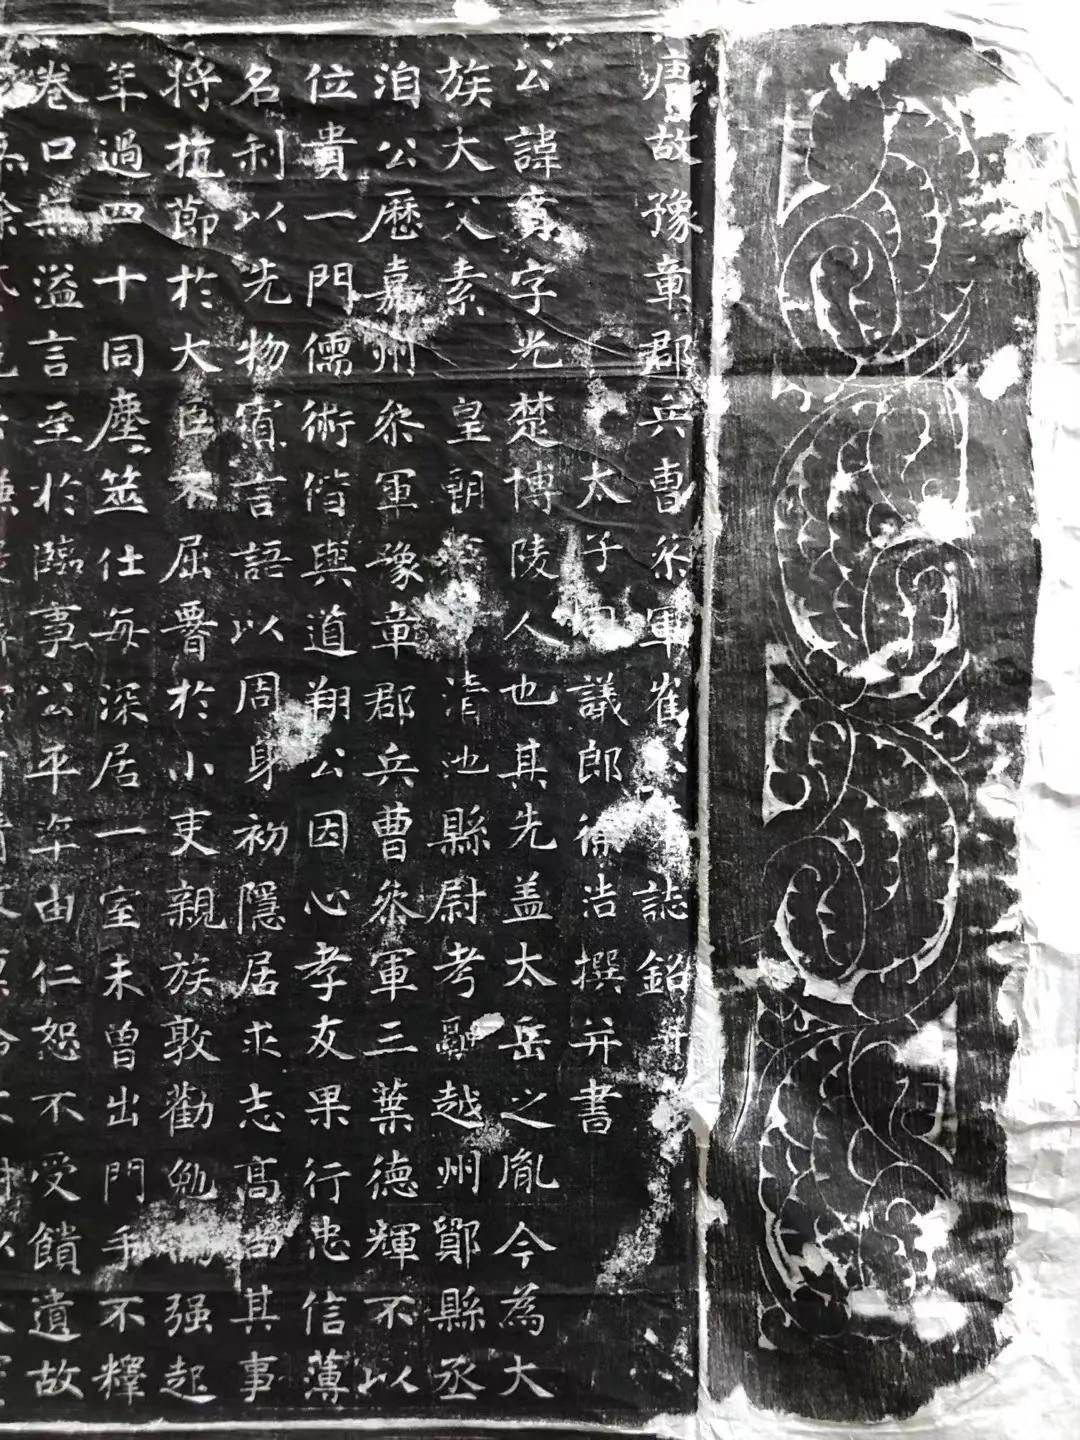 唐故豫章郡兵曹叅軍崔誌銘并
太子司議郎徐浩撰并書
公諱賁字光楚博陵人也其先盖太岳之胤今為大
族大父素皇朝清池縣尉考嗣越州鄮縣丞
洎公歷嘉州叅軍豫章郡兵曹叅軍三葉德輝不以
位貴一門儒術偕與道翔公因心孝友果行忠信薄
名利以先物寡言語以周身初隱居求志高尚其事
將抗節於大臣不屈詈於小吏親族敦勸勉強起
年過四十同塵筮仕每深居一室未曾出門手不釋
卷口無溢言至於臨事公平率由仁恕不受饋遺故